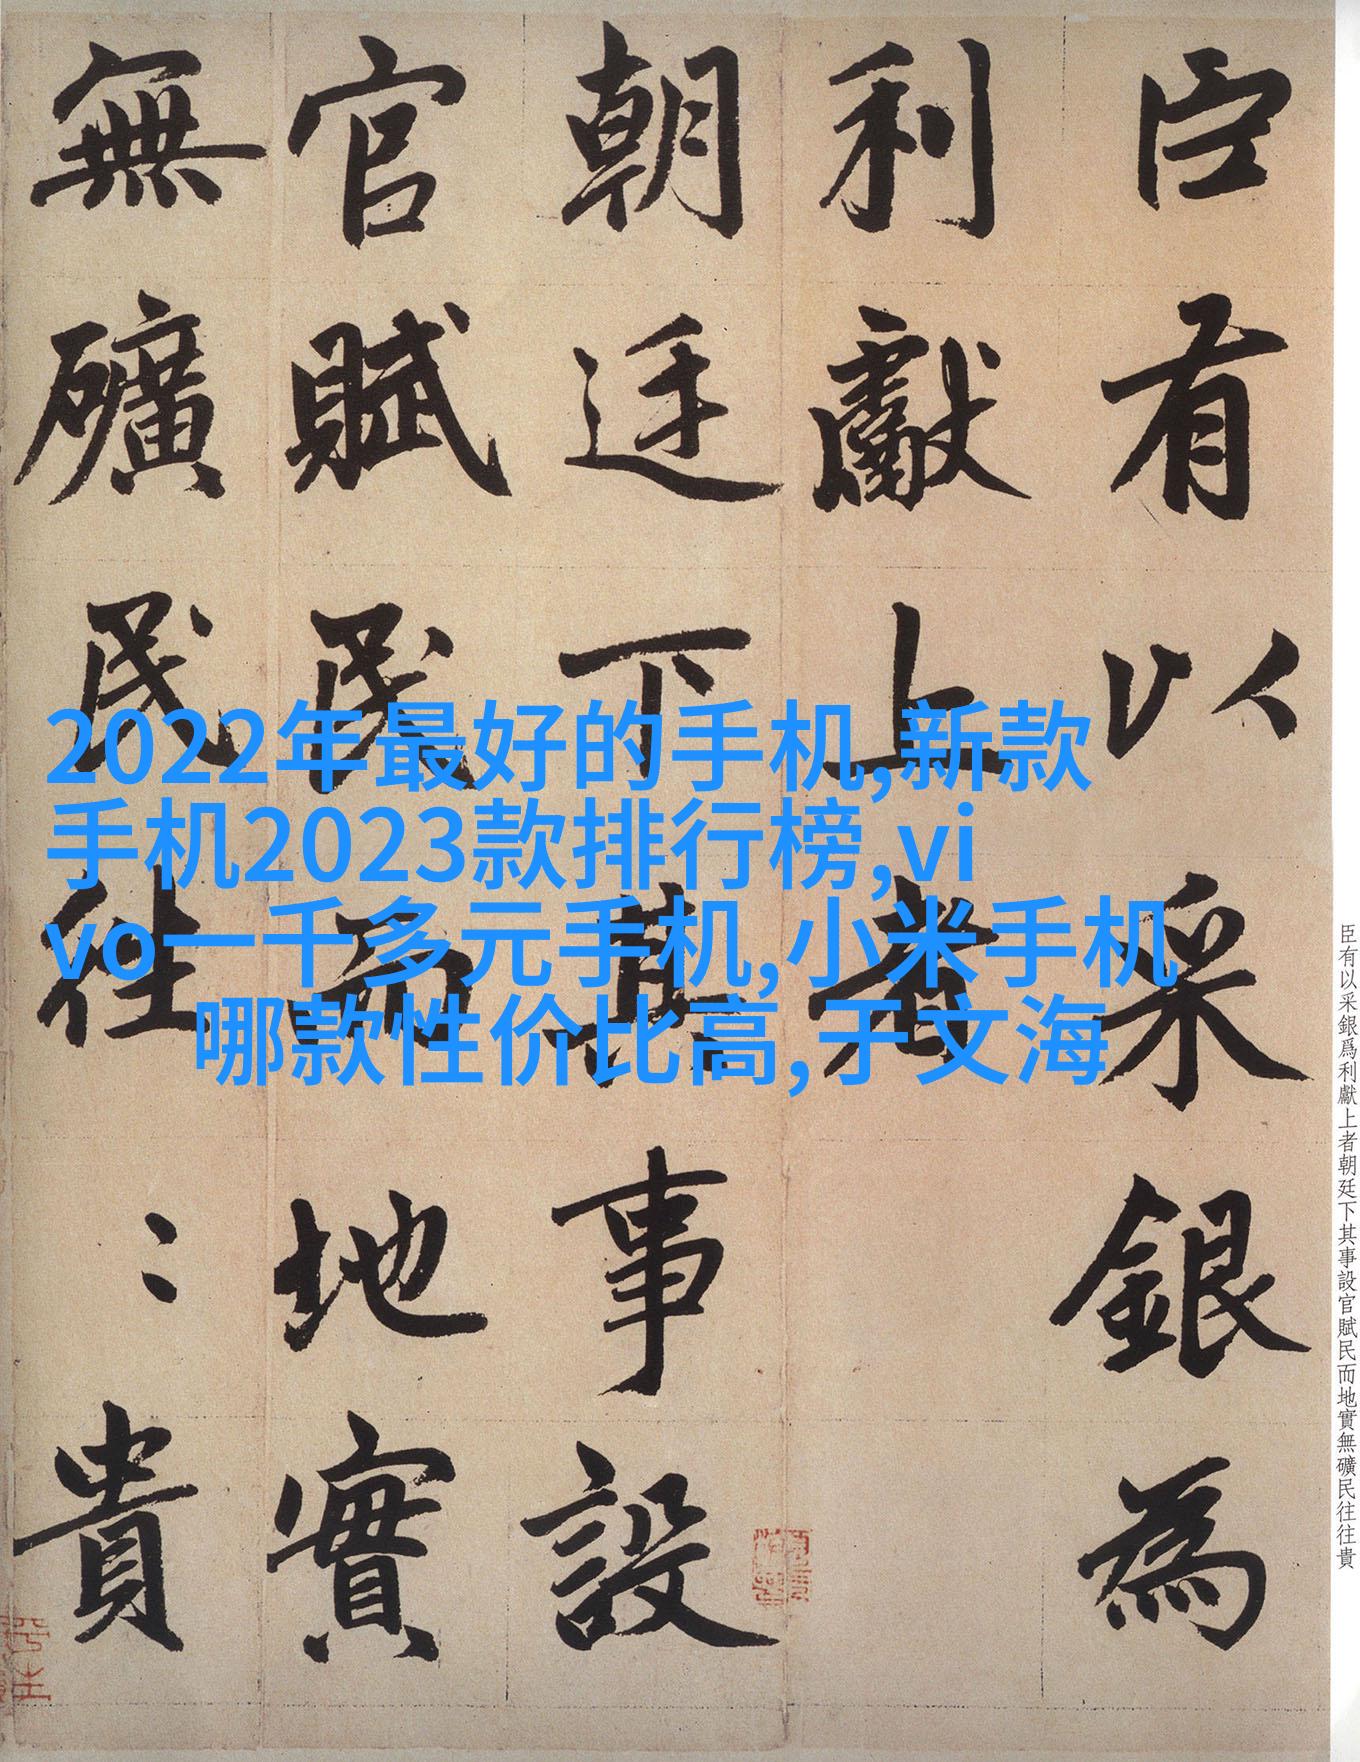 臣有以采銀為
利獻上者
朝廷下其事設
官賦民而地實
無礦民往〻貴
2022年最好的手机,新款
手机2023款排行榜,vi
vo一千多元手机,小米手机
哪款性价比高,于文海
臣有以采銀爲利獻上者朝廷下其事設官賦民而地實無礦民往往貴